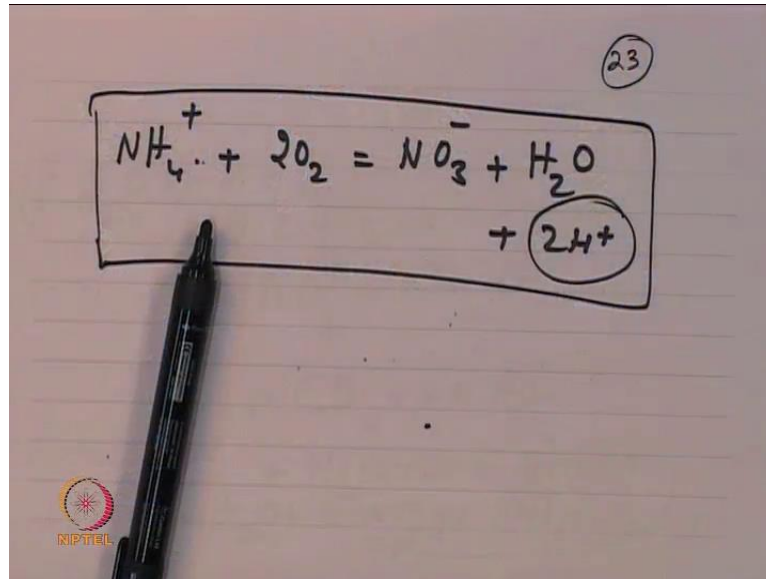 23
NH₄⁺ + 2O₂ = NO₃⁻ + H₂O
+ 2H⁺
NPTEL